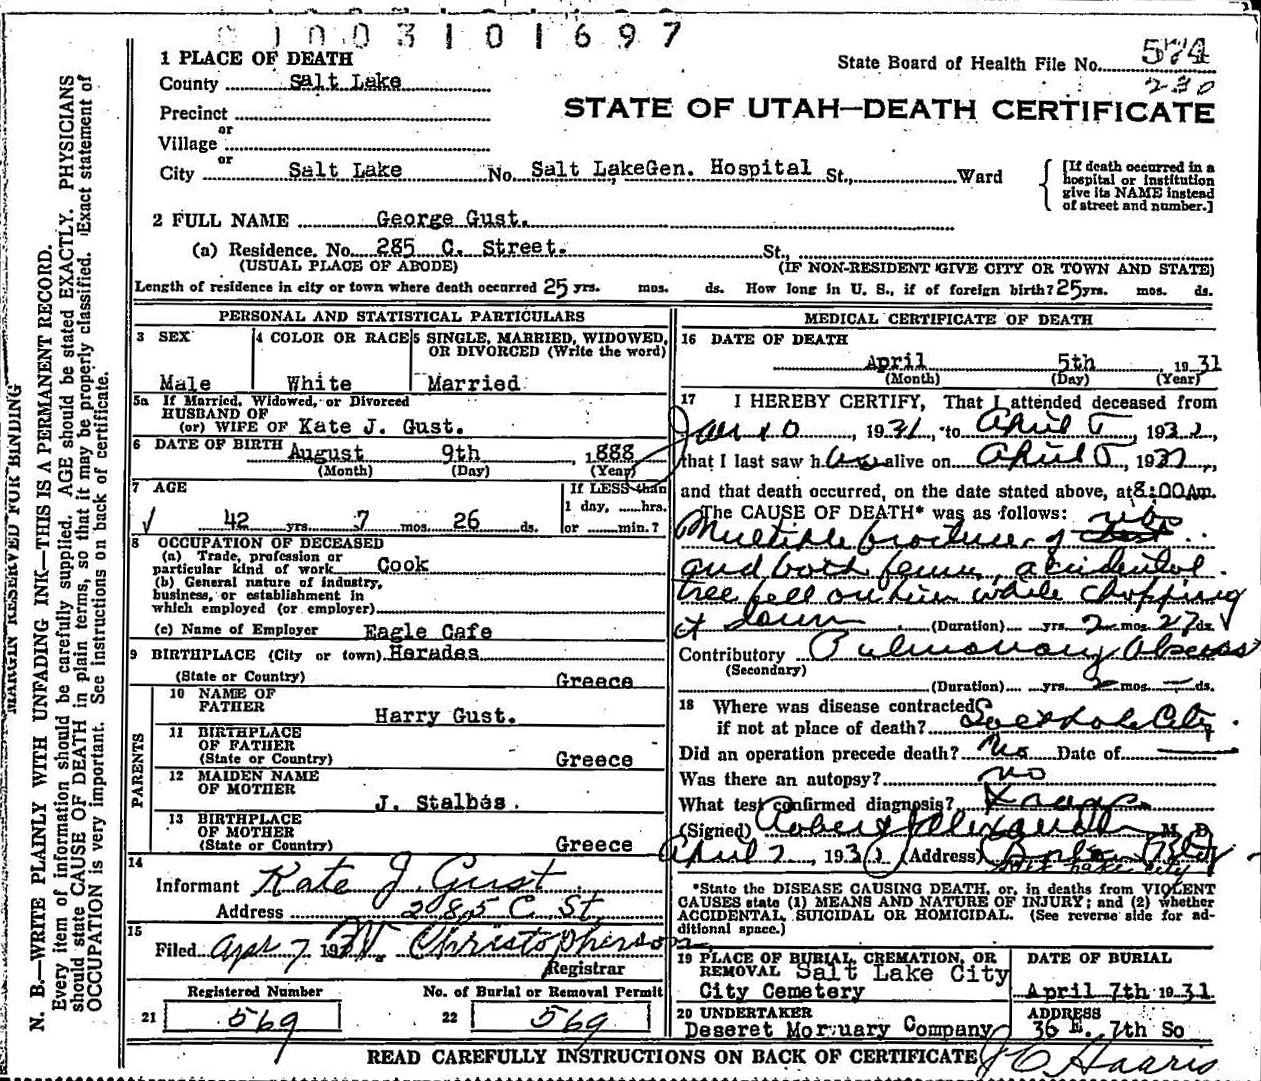 1003101697
1 PLACE OF DEATH
County Salt Lake
State Board of Health File No. 574
230
Precinct
or
Village
or
STATE OF UTAH—DEATH CERTIFICATE
City Salt Lake No. Salt LakeGen. Hospital St., Ward
[If death occurred in a hospital or institution give its NAME instead of street and number.]
2 FULL NAME George Gust.
(a) Residence. No. 285 C. Street. St.,
(USUAL PLACE OF ABODE) (IF NON-RESIDENT GIVE CITY OR TOWN AND STATE)
Length of residence in city or town where death occurred 25 yrs. mos. ds. How long in U. S., if of foreign birth? 25 yrs. mos. ds.
PERSONAL AND STATISTICAL PARTICULARS
3 SEX
Male
4 COLOR OR RACE
White
5 SINGLE, MARRIED, WIDOWED,
OR DIVORCED (Write the word)
Married
5a If Married, Widowed, or Divorced
HUSBAND OF
(or) WIFE OF Kate J. Gust.
6 DATE OF BIRTH August 9th , 1888
(Month) (Day) (Year)
7 AGE
√ 42 yrs. 7 mos. 26 ds.
If LESS than
1 day, hrs.
or min.?
8 OCCUPATION OF DECEASED
(a) Trade, profession or
particular kind of work Cook
(b) General nature of industry,
business, or establishment in
which employed (or employer)
(c) Name of Employer Eagle Cafe
9 BIRTHPLACE (City or town) Herades
(State or Country) Greece
PARENTS
10 NAME OF
FATHER Harry Gust.
11 BIRTHPLACE
OF FATHER
(State or Country) Greece
12 MAIDEN NAME
OF MOTHER J. Stalbas.
13 BIRTHPLACE
OF MOTHER
(State or Country) Greece
14
Informant Kate J. Gust
Address 285 C. St.
15
Filed Apr 7 193 Christopherson
Registrar
Registered Number No. of Burial or Removal Permit
21 569 22 569
MEDICAL CERTIFICATE OF DEATH
16 DATE OF DEATH
April 5th 1931
(Month) (Day) (Year)
17 I HEREBY CERTIFY, That I attended deceased from
Jan 10, 1931, to April 5, 193
that I last saw h alive on April 5, 193
and that death occurred, on the date stated above, at 8:00Am.
The CAUSE OF DEATH* was as follows: ribs
Multiple fracture of
and both femur, accidental.
tree fell on him while chopping
it down (Duration) yrs. 2 mos. 27 ds. √
Contributory Pulmonary Abscess
(Secondary)
(Duration) yrs. 2 mos. — ds.
18 Where was disease contracted
if not at place of death?
Did an operation precede death? No Date of
Was there an autopsy? no
What test confirmed diagnosis? X rays
(Signed) Robert J Alexander M D
April 7, 193 (Address)
Salt Lake City
*State the DISEASE CAUSING DEATH, or, in deaths from VIOLENT
CAUSES state (1) MEANS AND NATURE OF INJURY; and (2) whether
ACCIDENTAL, SUICIDAL OR HOMICIDAL. (See reverse side for ad-
ditional space.)
19 PLACE OF BURIAL, CREMATION, OR
REMOVAL Salt Lake City
City Cemetery
DATE OF BURIAL
April 7th 1931
20 UNDERTAKER
Deseret Mortuary Company
ADDRESS
36 E. 7th So
READ CAREFULLY INSTRUCTIONS ON BACK OF CERTIFICATE
J C Harris
MARGIN RESERVED FOR BINDING
N. B.—WRITE PLAINLY WITH UNFADING INK—THIS IS A PERMANENT RECORD.
Every item of information should be carefully supplied. AGE should be stated EXACTLY. PHYSICIANS
should state CAUSE OF DEATH in plain terms, so that it may be properly classified. Exact statement of
OCCUPATION is very important. See instructions on back of certificate.